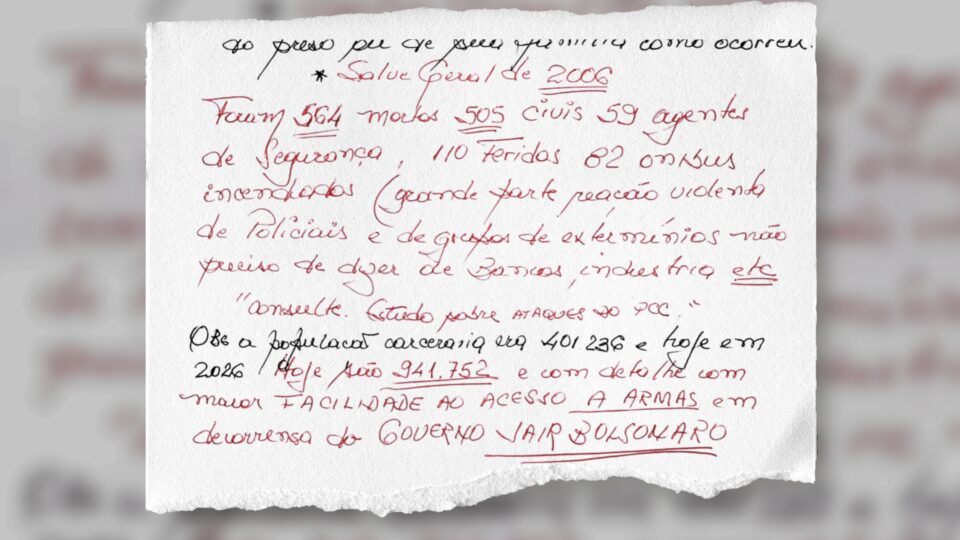 do preso ou de sua familia como ocorreu.
* Salve Geral de 2006
Foram 564 mortos 505 civis 59 agentes
de Segurança, 110 feridos 82 onibus
incendiados (grande parte reação violenta
de Policiais e de grupos de extermínios não
preciso de dizer de Bancos, industria etc
"consulte. Estudo sobre ATAQUES DO PCC."
Obs a população carceraria era 401 236 e hoje em
2026 Hoje são 941.752 e com detalhe com
maior FACILIDADE AO ACESSO A ARMAS em
decorrensa do GOVERNO JAIR BOLSONARO